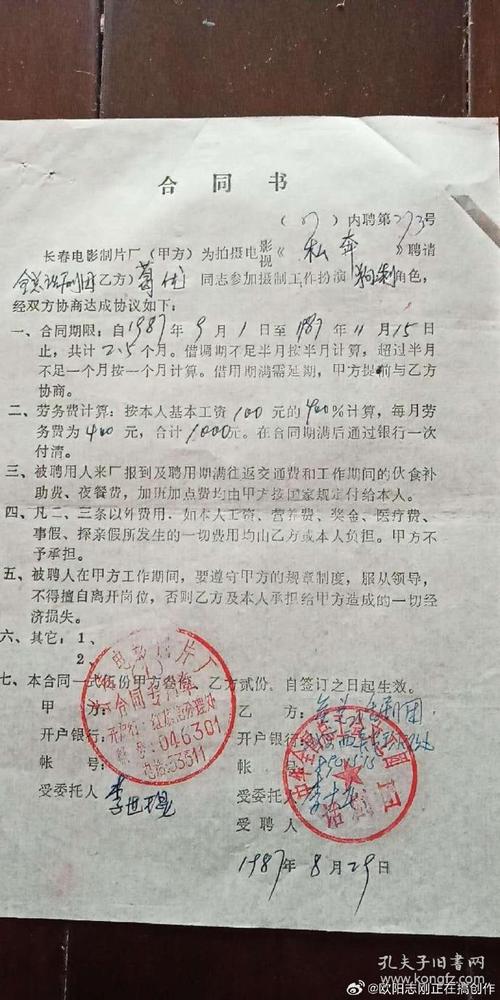 合同书
(87)内聘第273号
长春电影制片厂(甲方)为拍摄电影视《私奔》聘请
全总话剧团(乙方)葛优同志参加摄制工作扮演狗剩角色,
经双方协商达成协议如下:
一、合同期限:自1987年9月1日至1987年11月15日
止,共计2.5个月。借调期不足半月按半月计算,超过半月
不足一个月按一个月计算。借用期满需延期,甲方提前与乙方
协商。
二、劳务费计算:按本人基本工资100元的400%计算,每月劳
务费为400元,合计1000元。在合同期满后通过银行一次
付清。
三、被聘用人来厂报到及聘用期满往返交通费和工作期间的伙食补
助费、夜餐费,加班加点费均由甲方按国家规定付给本人。
四、凡二、三条以外费用.如本人工资、营养费、奖金、医疗费、
事假、探亲假所发生的一切费用均由乙方或本人负担。甲方不
予承担。
五、被聘人在甲方工作期间,要遵守甲方的规章制度,服从领导,
不得擅自离开岗位,否则乙方及本人承担给甲方造成的一切经
济损失。
六、其它:1、
2、
七、本合同一式伍份甲方叁份,乙方贰份,自签订之日起生效。
甲方: 乙方:全总话剧团
开户银行: 开户银行:
帐号: 帐号:
受委托人 李世 受委托人
受聘人
1987年8月29日
电影制片厂
合同专用章
开户行:
帐号:046301
电话:53311
中华全国总工会
话剧团
孔夫子旧书网
@欧阳志刚正在搞创作